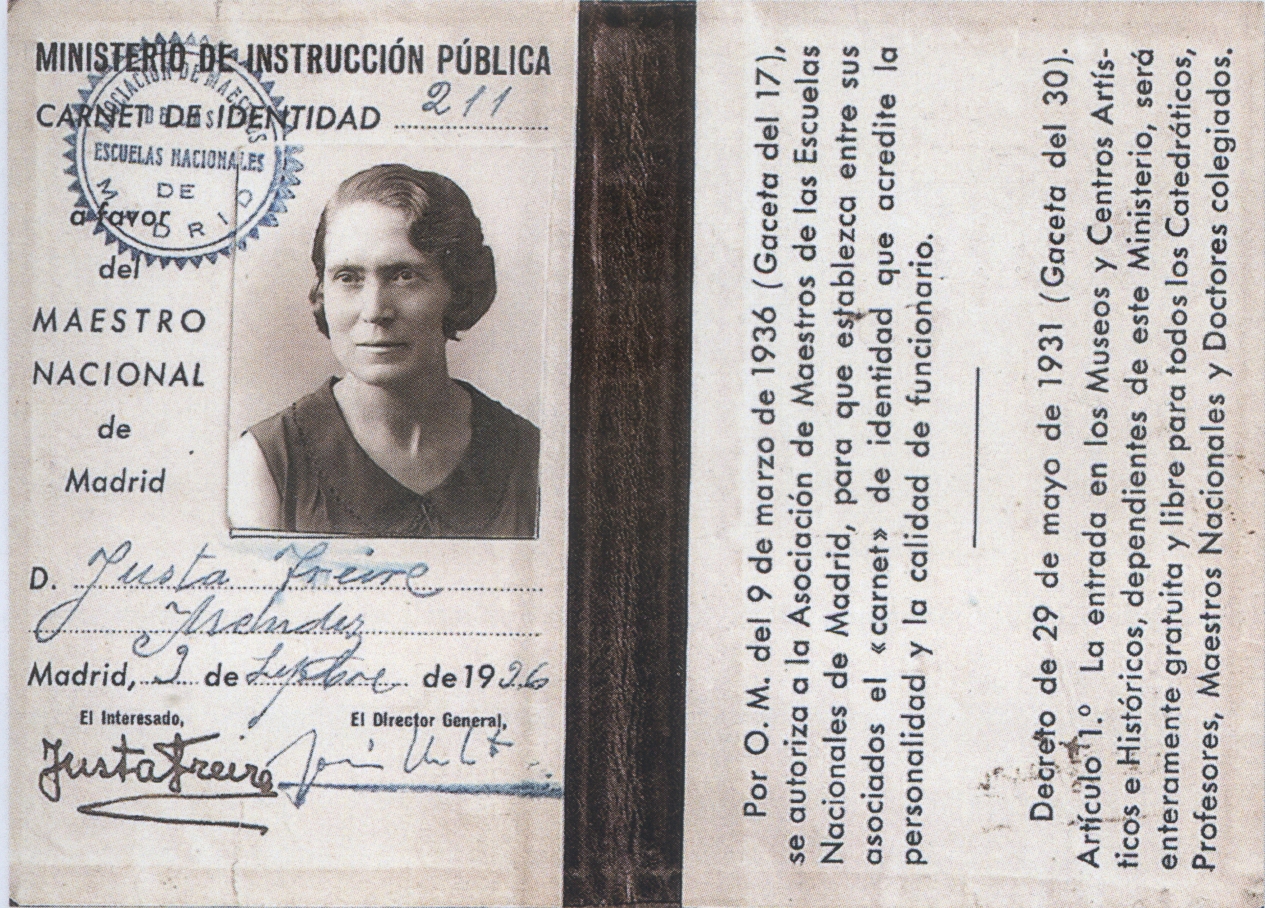 MINISTERIO DE INSTRUCCIÓN PÚBLICA
CARNET DE IDENTIDAD 211
ASOCIACION DE MAESTROS
DE LAS
ESCUELAS NACIONALES
DE
MADRID
a favor
del
MAESTRO
NACIONAL
de
Madrid
D. Justa Freire
Mendez
Madrid, 3 de Sepbre de 1936
El Interesado, El Director General,
Justa Freire
Por O. M. del 9 de marzo de 1936 (Gaceta del 17),
se autoriza a la Asociación de Maestros de las Escuelas
Nacionales de Madrid, para que establezca entre sus
asociados el «carnet» de identidad que acredite la
personalidad y la calidad de funcionario.
Decreto de 29 de mayo de 1931 (Gaceta del 30).
Artículo 1.º La entrada en los Museos y Centros Artís-
ticos e Históricos, dependientes de este Ministerio, será
enteramente gratuita y libre para todos los Catedráticos,
Profesores, Maestros Nacionales y Doctores colegiados.